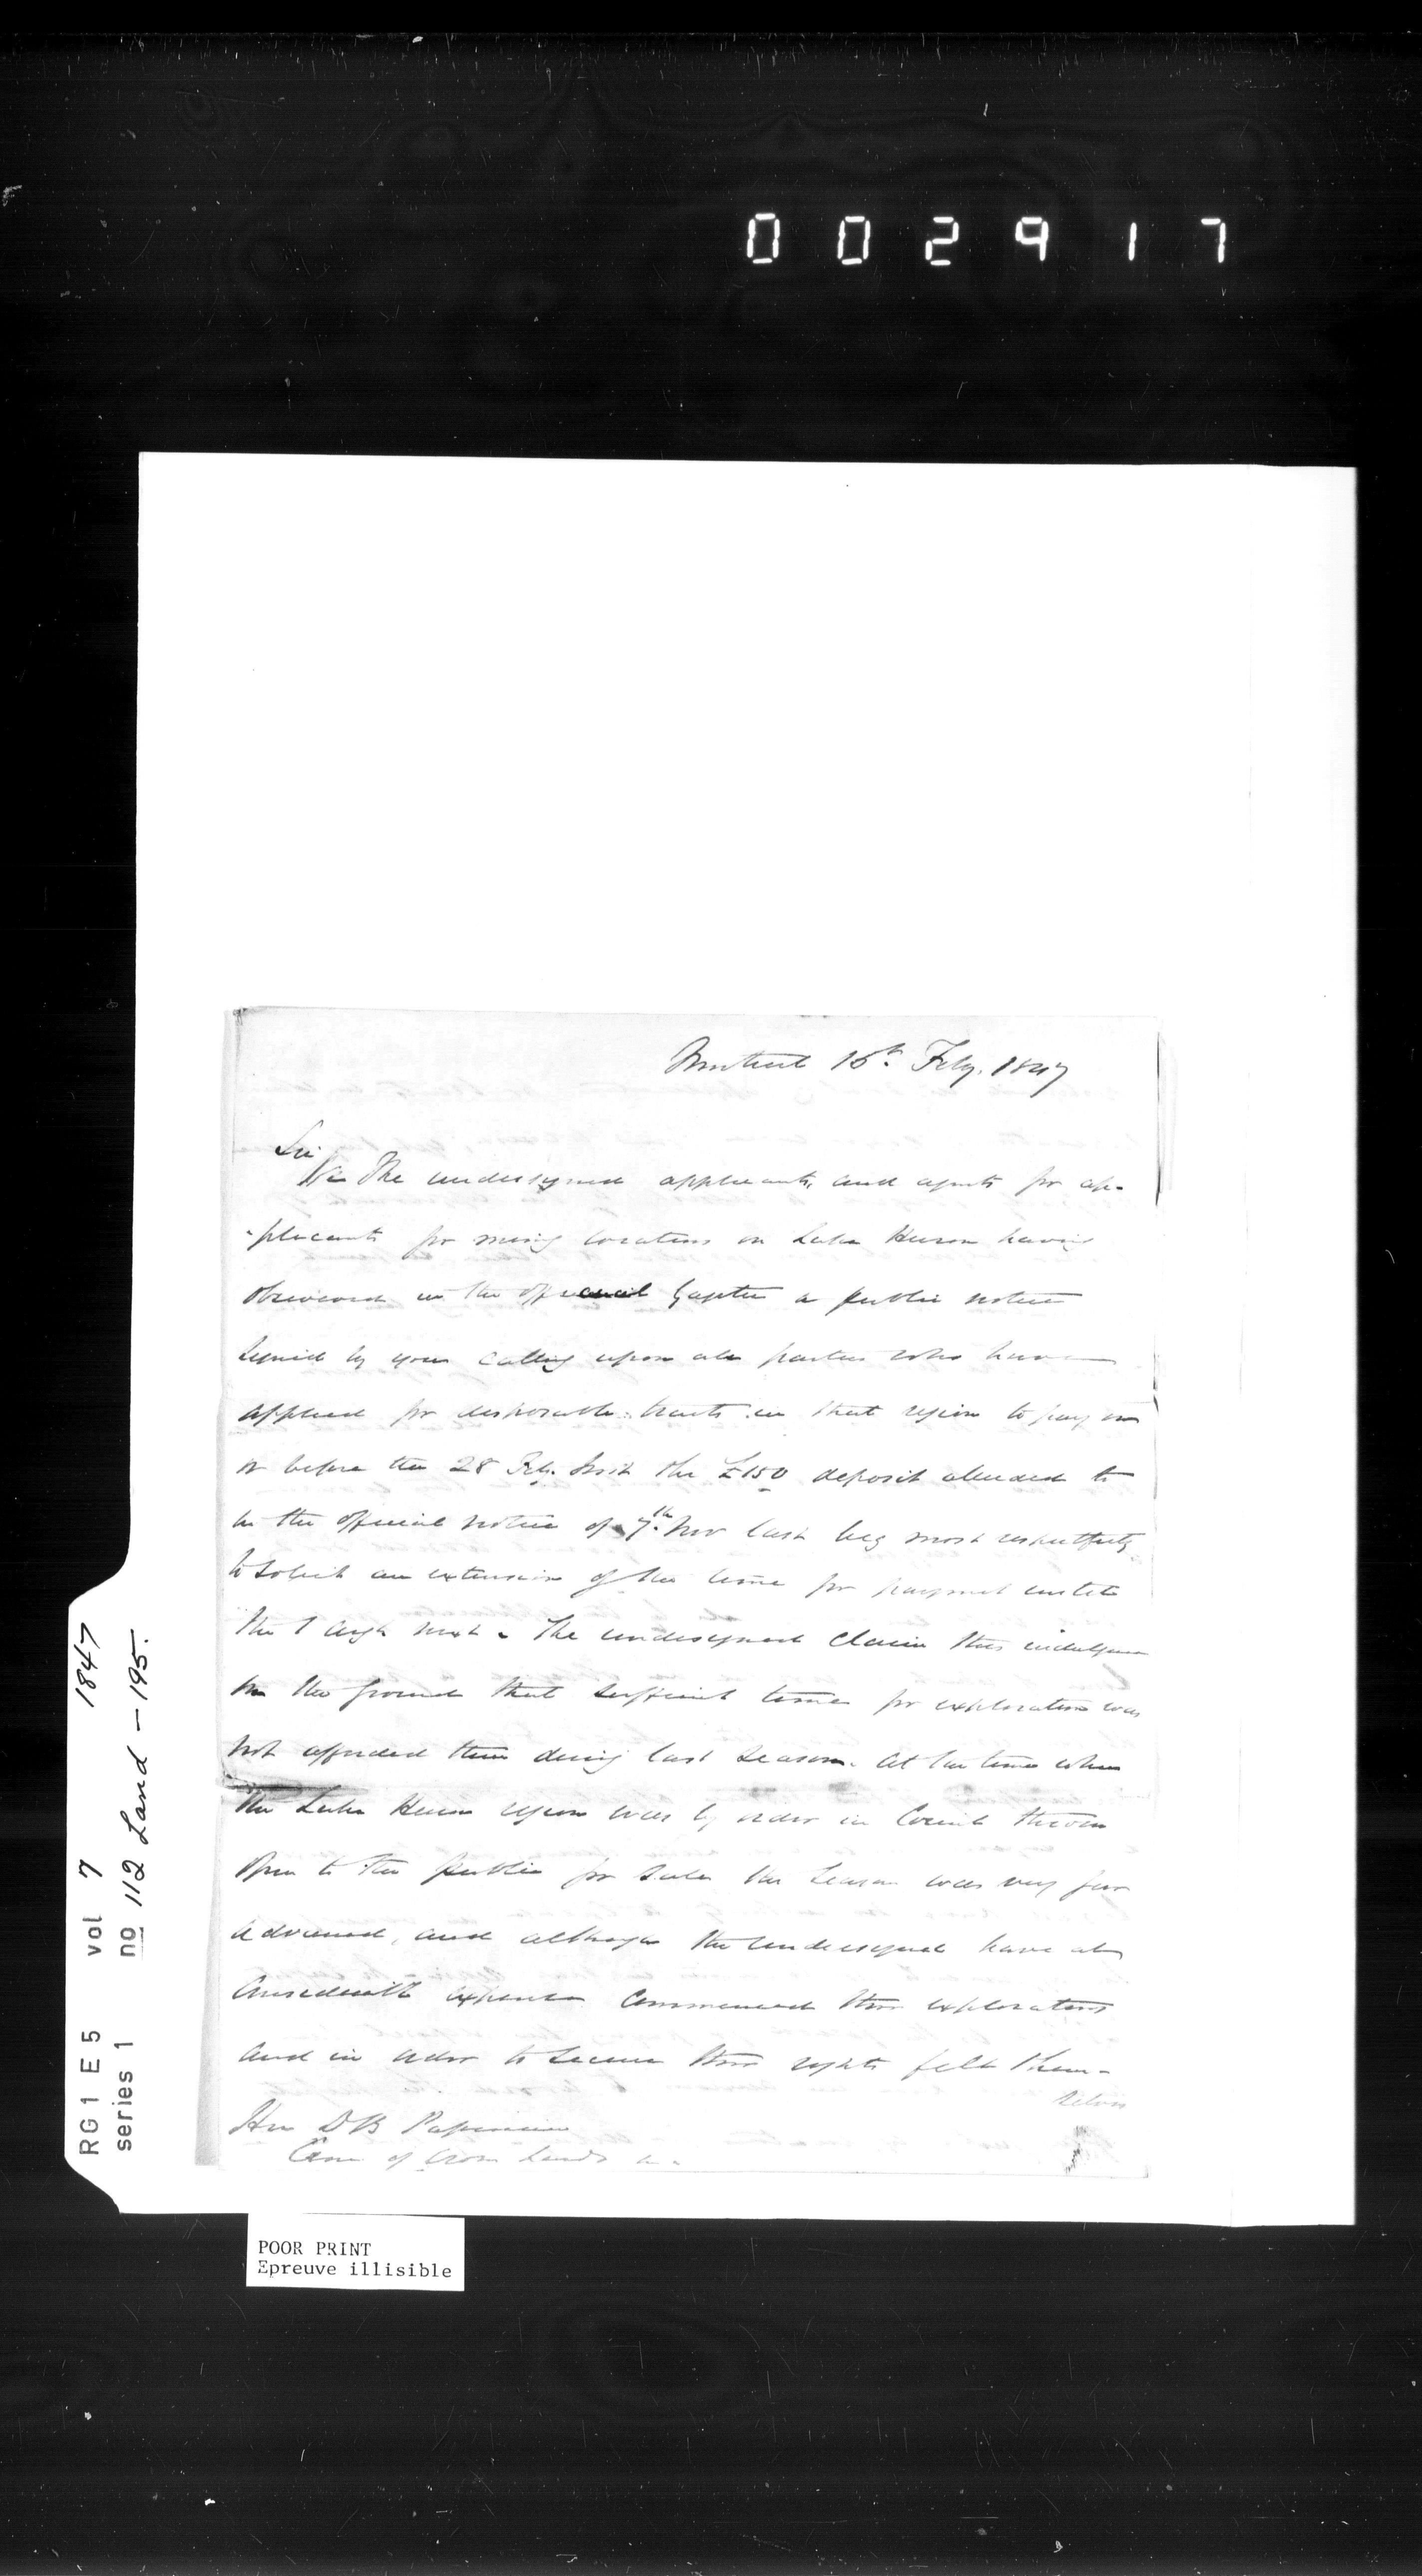 002917
Montreal 16th Feby. 1847
Sir
We The undersigned applicants and agents for ap-
-plicants for mining locations on Lake Huron having
observed in the official Gazette a public notice
signed by you calling upon all parties who have
applied for disposable tracts in that region to pay on
or before the 28 Feb. inst the £150 deposit alluded to
in the official notice of 7th Nov last beg most respectfully
to solicit an extension of the time for payment until
the 1 Augt next. The undersigned claim this indulgence
on the ground that sufficient time for exploration was
not afforded them during last season. At the time when
the Lake Huron region was by order in Council thrown
open to the public for sale the season was very far
advanced, and although the undersigned have at
considerable expense commenced their explorations
and in order to secure their rights felt them-
selves
Hon D B Papineau
Com of Crown Lands
RG1 E5 vol 7 1847
series 1 no 112 Land - 195.
POOR PRINT
Epreuve illisible